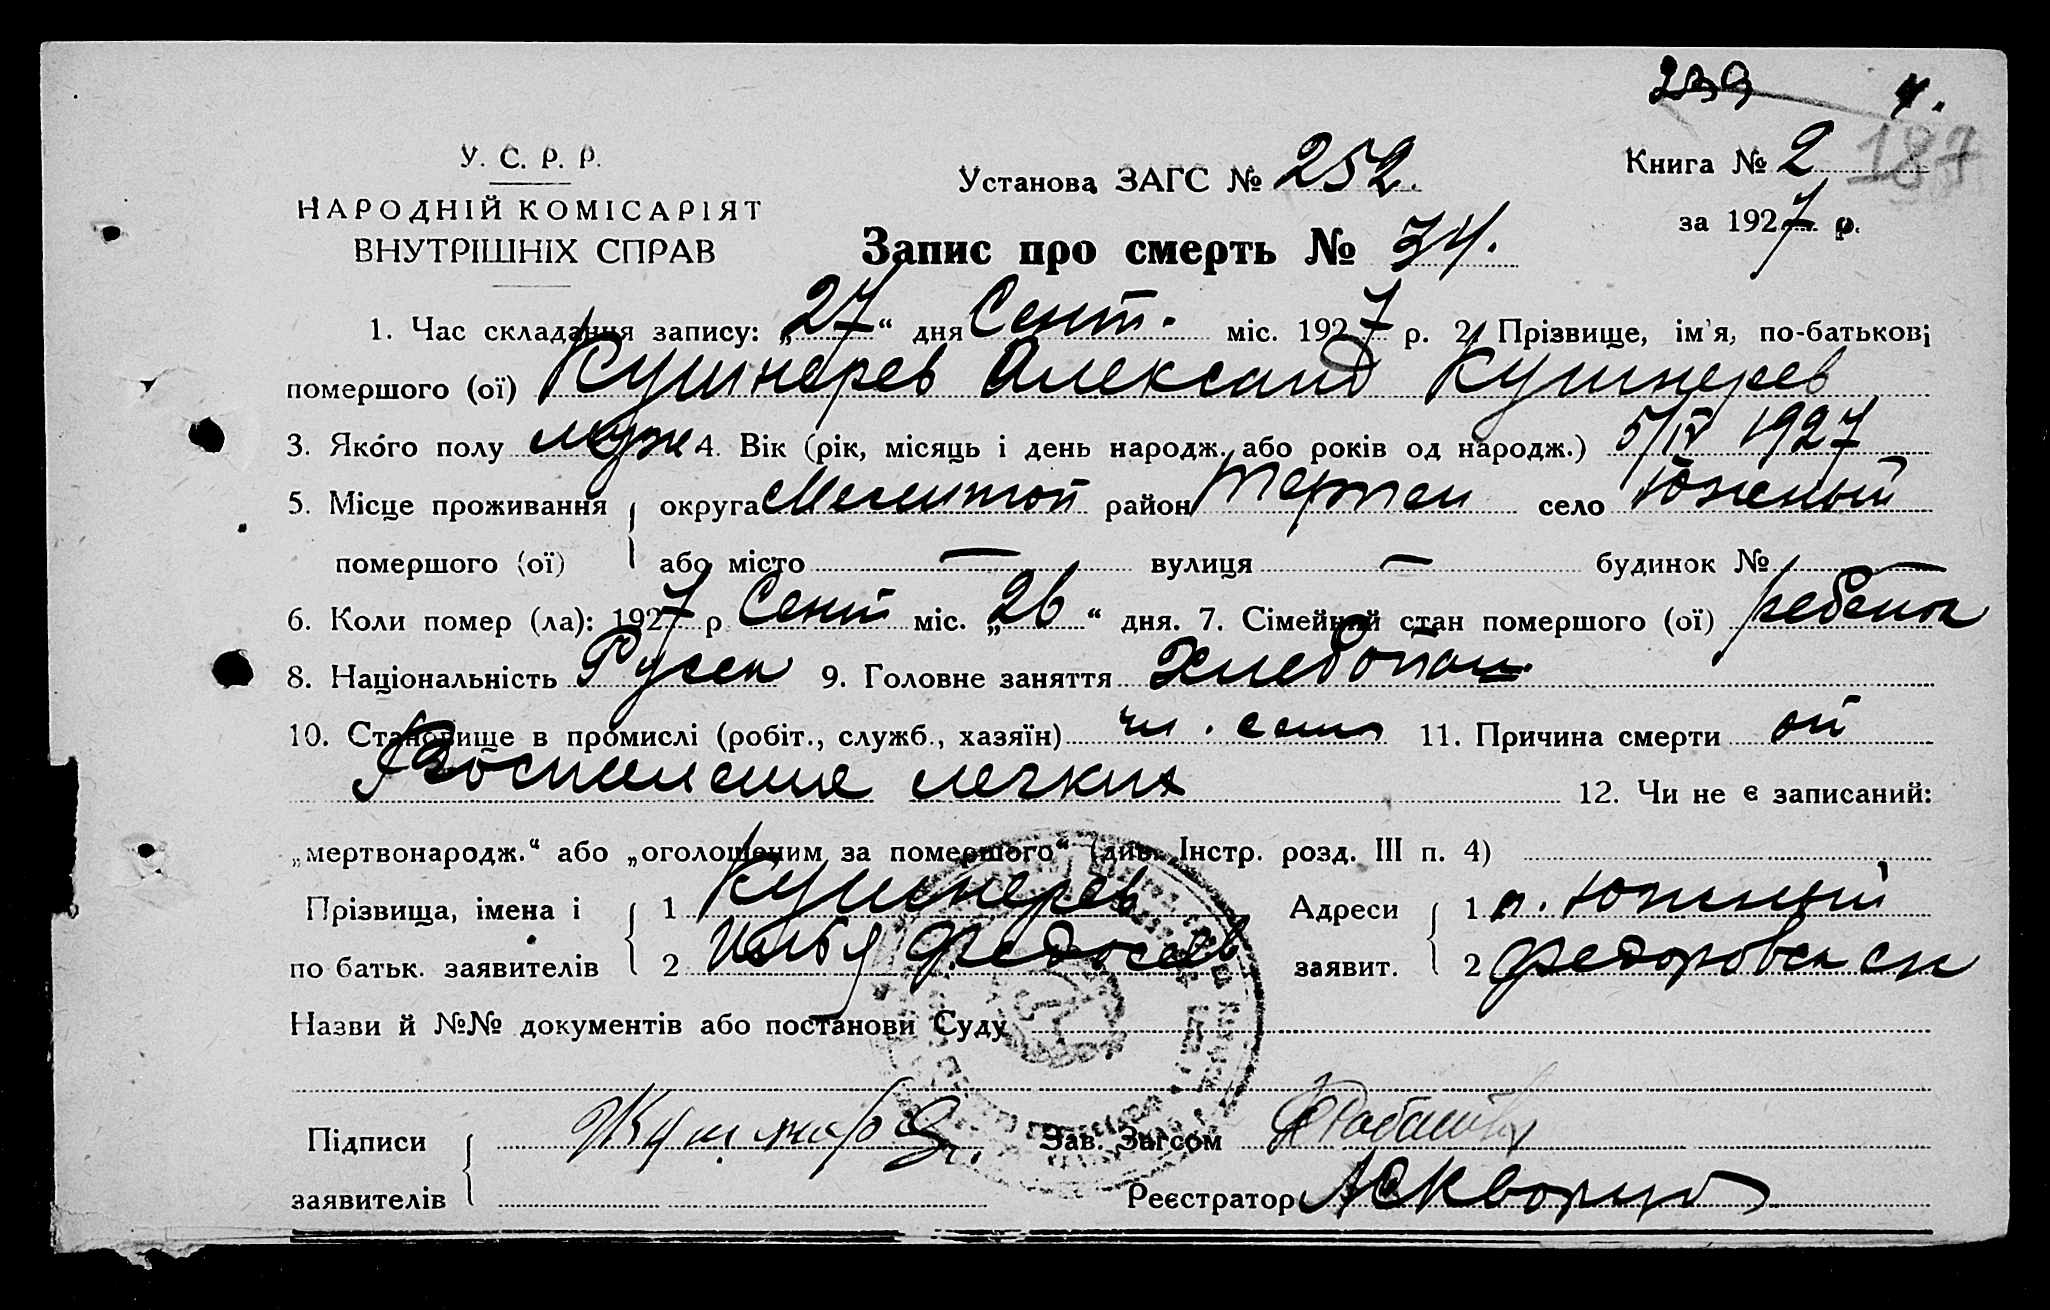 239 4.
У. С. Р. Р.
НАРОДНІЙ КОМІСАРІЯТ
ВНУТРІШНІХ СПРАВ
Установа ЗАГС № 252.
Книга № 2 187
за 1927 р.
Запис про смерть № 34.
1. Час складання запису: „27“ дня Сент. міс. 1927 р. 2. Прізвище, ім'я, по-батькові
помершого (ої) Кушнерев Александ Кушнерев
3. Якого полу муж 4. Вік (рік, місяць і день народж. або років од народж.) 5/IV 1927
5. Місце проживання округа Мелитоп район Терпен село Южный
помершого (ої) або місто — вулиця — будинок №
6. Коли помер (ла): 1927 р Сент міс. „26“ дня. 7. Сімейний стан помершого (ої) ребенок
8. Національність Русск 9. Головне заняття Хлебопаш.
10. Становище в промислі (робіт., служб., хазяїн) чл. семи 11. Причина смерти от
Воспиления легких 12. Чи не є записаний:
„мертвонародж.“ або „оголошеним за помершого“ (див. Інстр. розд. III п. 4)
Прізвища, імена і 1 Кушнерев Адреси 1 п. Южный
по батьк. заявителів 2 Илья Федосеев заявит. 2 Федоровск с/с
Назви й №№ документів або постанови Суду
Підписи Зав. Загсом
заявителів Реєстратор АСкворцов